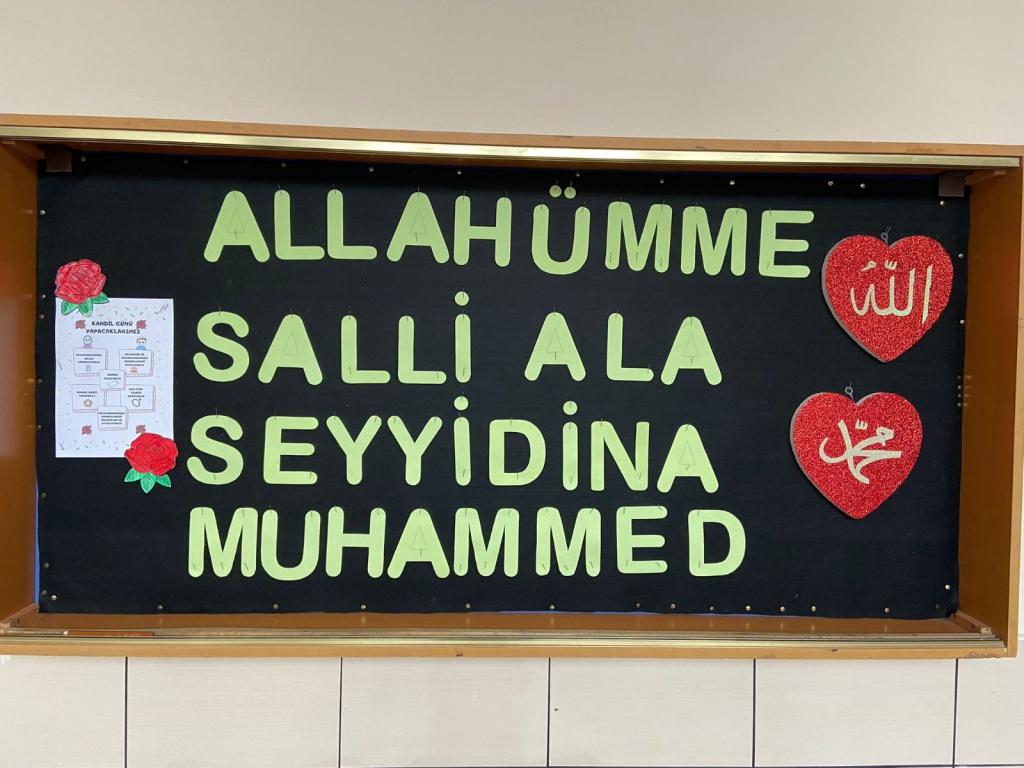 ALLAHÜMME
SALLİ ALA
SEYYİDİNA
MUHAMMED
الله
محمد
KANDİL GÜNÜ
YAPACAKLARIMIZ